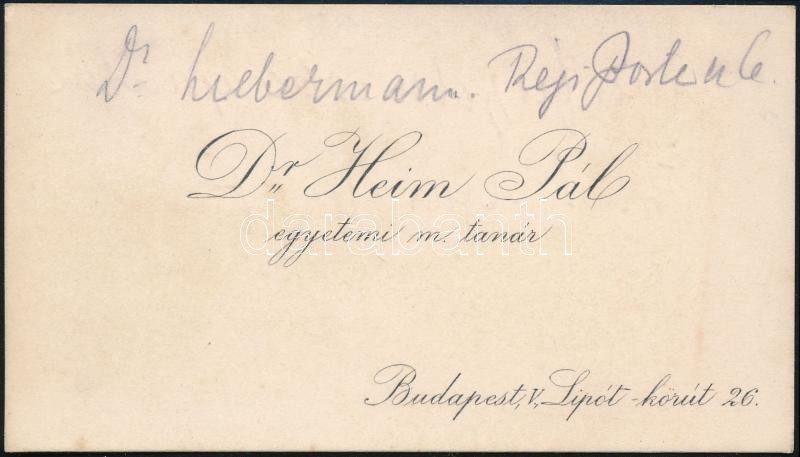 Dr. Liebermann. Régi posta u 6.
Dr. Heim Pál
egyetemi m. tanár
darabanth
Budapest, V., Lipót-körút 26.